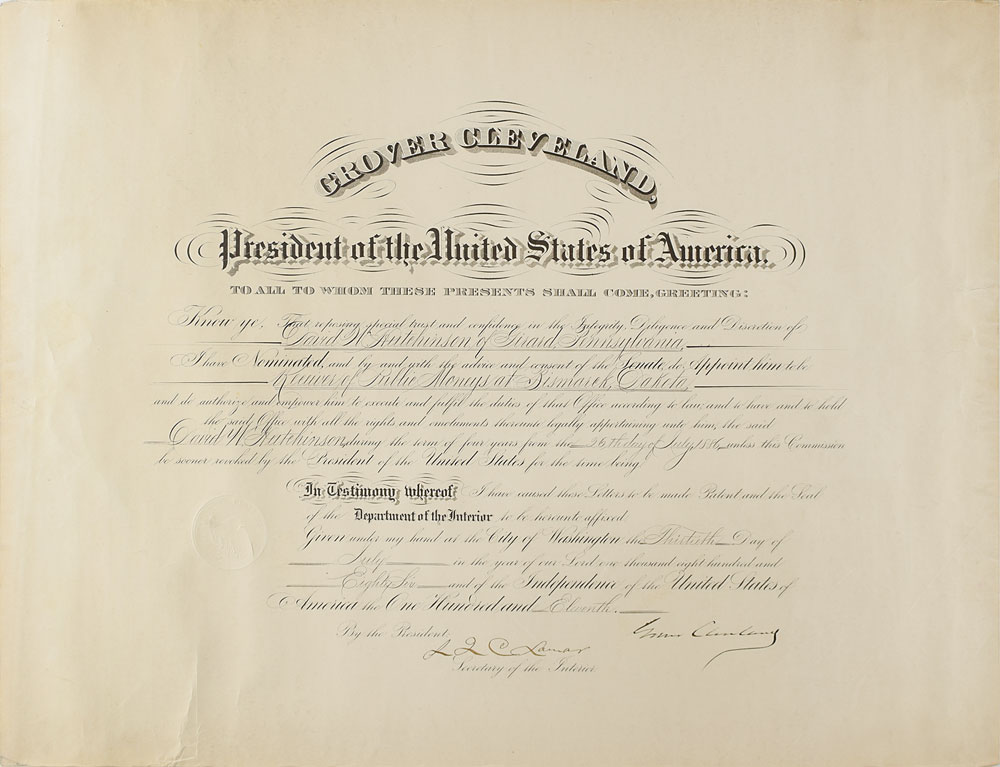 GROVER CLEVELAND,
President of the United States of America.
TO ALL TO WHOM THESE PRESENTS SHALL COME, GREETING:
Know ye, That reposing special trust and confidence in the Integrity, Diligence and Discretion of
David W. Hutchinson of Girard, Pennsylvania,
I have Nominated, and by and with the advice and consent of the Senate do Appoint him to be
Receiver of Public Moneys at Bismarck, Dakota,
and do authorize and empower him to execute and fulfil the duties of that Office according to law; and to have and to hold
the said Office with all the rights and emoluments thereunto legally appertaining unto him, the said
David W. Hutchinson, during the term of four years from the 26th day of July, 1886, unless this Commission
be sooner revoked by the President of the United States for the time being.
In Testimony whereof I have caused these Letters to be made Patent and the Seal
of the Department of the Interior to be hereunto affixed.
Given under my hand at the City of Washington the Thirtieth Day of
July in the year of our Lord one thousand eight hundred and
Eighty Six and of the Independence of the United States of
America the One Hundred and Eleventh.
By the President, Grover Cleveland
L Q C Lamar
Secretary of the Interior